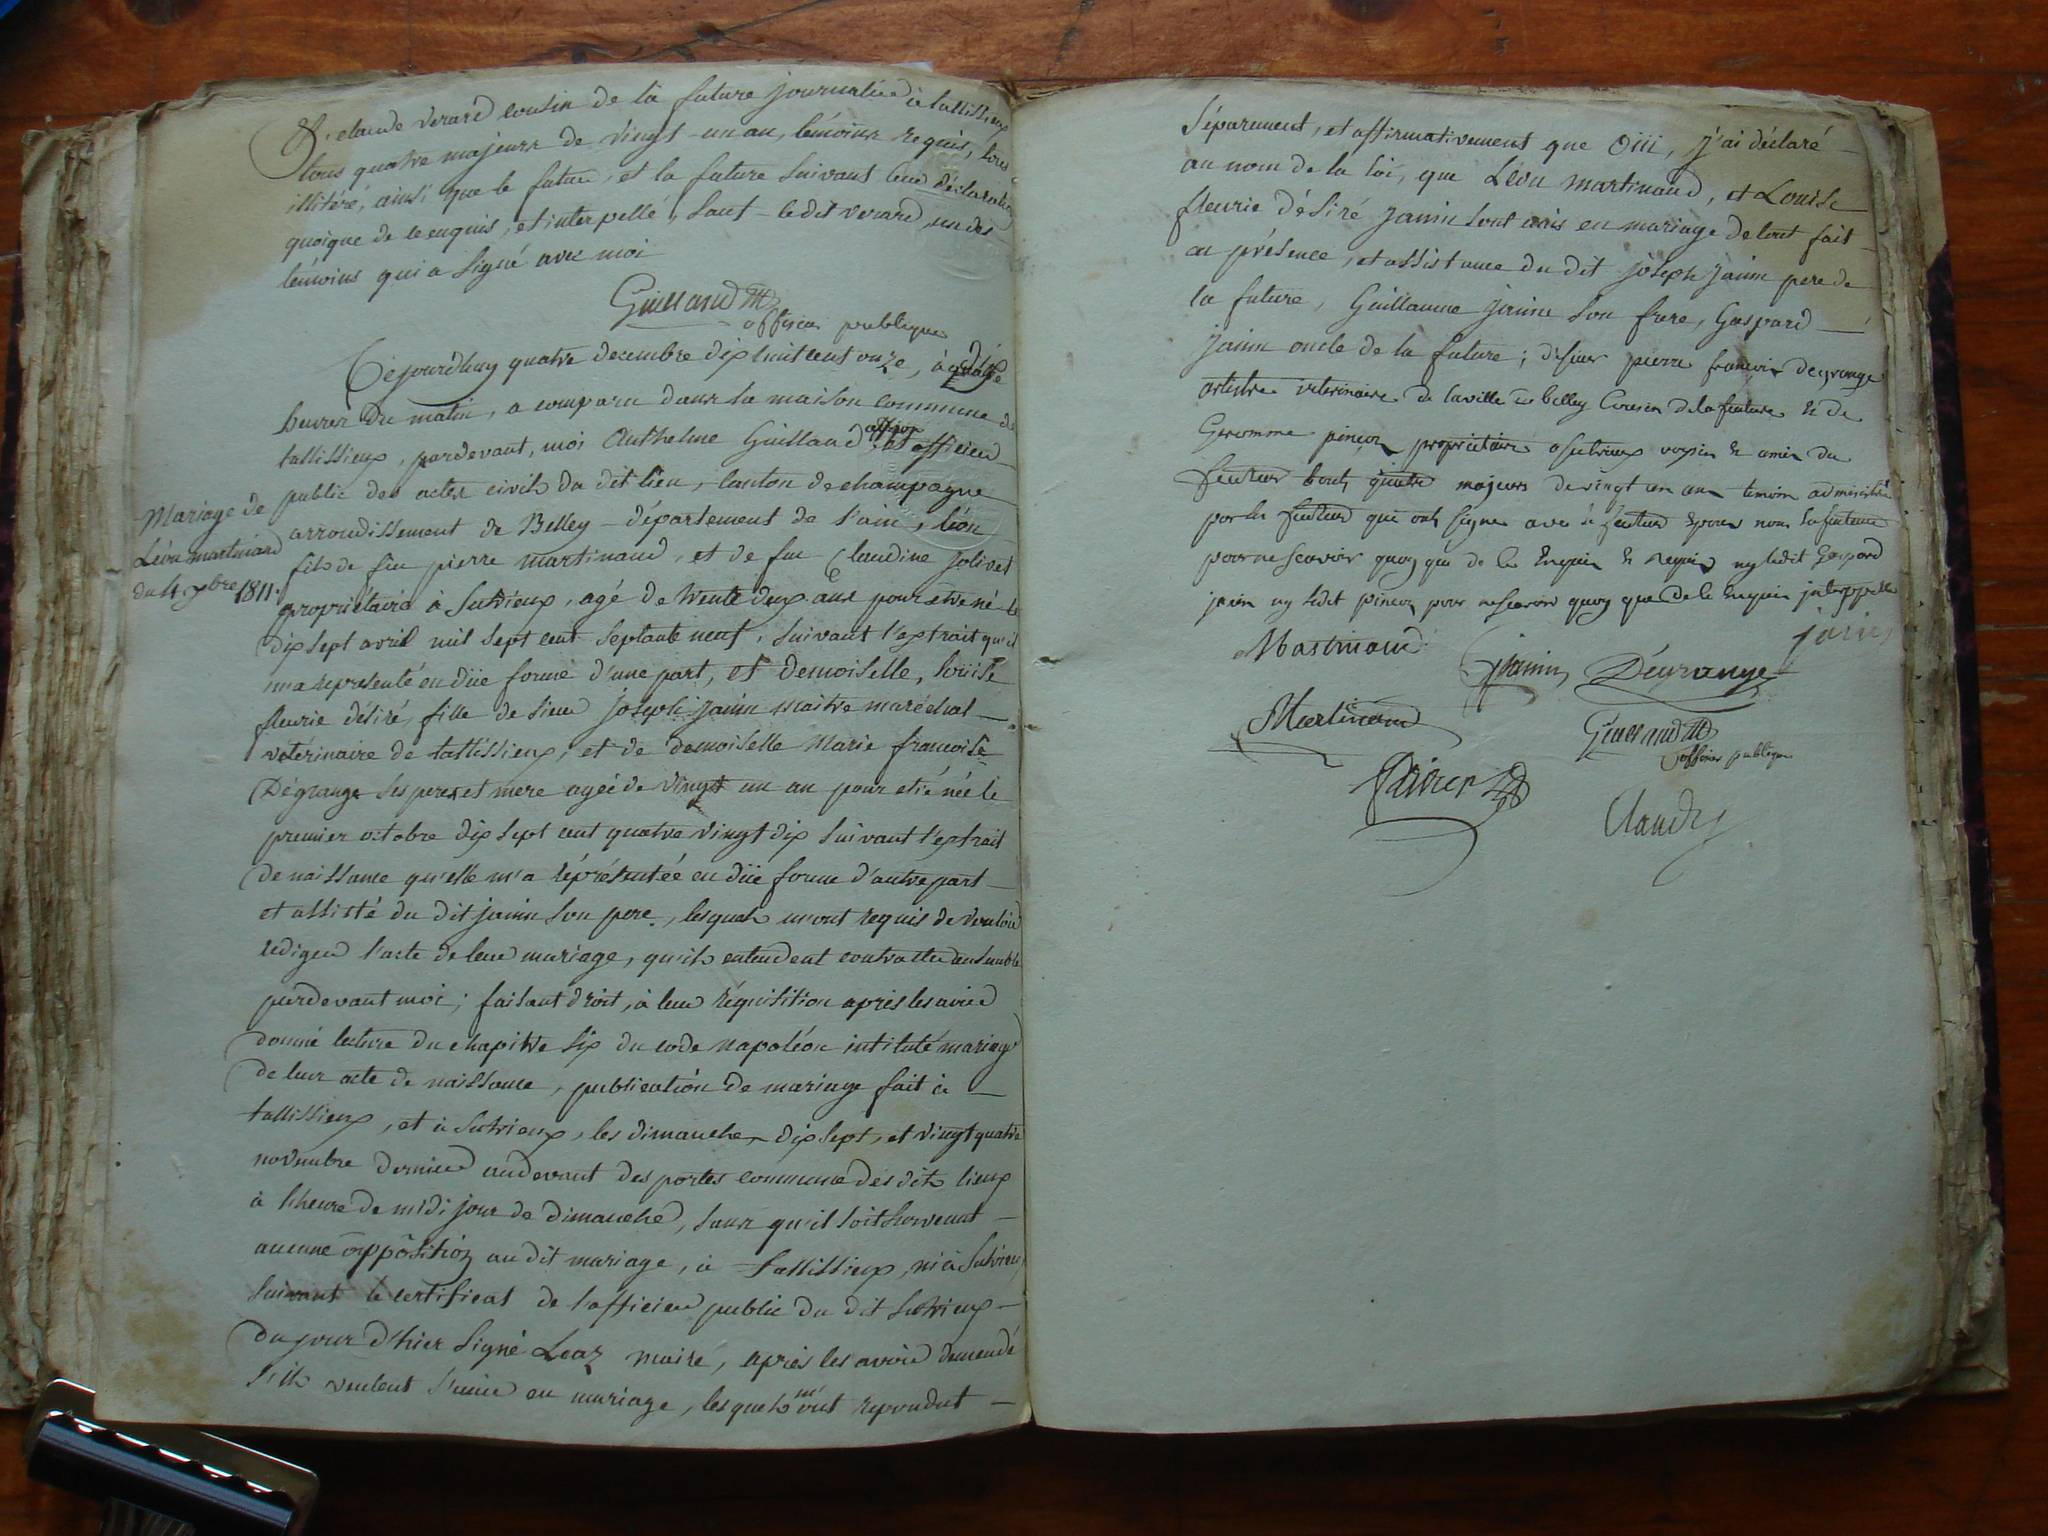 & claude verard cousin de la future journalier à tallissieux
tous quatre majeurs de vingt-un an, témoins requis, tous
illitéré, ainsi que le futur, et la future suivant leur déclaration
quoique de ce enquis, et interpellé, sauf le dit verard, un des
témoins qui a signé avec moi
Guilland
officier publique
Cejourdhuy quatre decembre dix huit cent onze, à
heures du matin, a comparu dans la maison commune de
tallissieux, pardevant, moi Anthelme Guilland officier
public des actes civils du dit lieu, canton de champagne
arrondissement de Belley – département de l'ain, léon
Mariage de
Léon martinand
du 4 xbre 1811.
fils de feu pierre martinand, et de feu Claudine Jolivet
propriétaire à Sutrieux, agé de trente deux ans pour etre né le
dix sept avril mil sept cent septante neuf, suivant l'extrait qu'il
m'a représenté en düe forme d'une part, et demoiselle, loüise
fleurie désiré, fille de sieur joseph janin maitre maréchal –
vétérinaire de tallissieux, et de demoiselle Marie françoise
Dégrange ses pere et mere agée de vingt un an pour etre née le
premier octobre dix sept cent quatre vingt dix suivant l'extrait
de naissance qu'elle m'a réprésentée en düe forme d'autre part –
et assisté du dit janin son pere, lesquels m'ont requis de vouloir
rediger l'acte de leur mariage, qu'ils entendent contracter ensemble
pardevant moi; faisant droit, à leur réquisition après les avoir
donné lecture du chapitre six du code napoléon intitulé mariage
de leur acte de naissance, publication de mariage fait à –
tallissieux, et à Sutrieux, les dimanches dix sept, et vingt quatre
novembre dernier audevant des portes commune des dits lieux
à l'heure de midi jour de dimanche, sans qu'il soit survenut –
aucune oppôsition au dit mariage, à tallissieux, ni à Sutrieux,
suivant le certificat de l'officier public du dit Sutrieux –
du jour d'hier signé Leaz maire, après les avoir demandé
s'ils veulent s'unir en mariage, lesquels m'ont repondut –
séparement, et affirmativement que Oüi, j'ai déclaré –
au nom de la loi, que Léon martinand, et Louise
fleurie désiré janin sont unis en mariage de tout fait –
en présence, et assistance du dit joseph janin pere de
la future, Guillaume janin son frere, Gaspard –
janin oncle de la future; de sieur pierre françois degrange
artiste veterinaire de la ville de belley Cousin de la future & de
Geromme pinçon propriétaire a sutrieux voysin & amis du
feutur tout quatre majeurs de vingt un an temoin administré
par les feuturs qui ont signé avec le feutur epoux non la feuture
pour ne scavoir quoy que de ce Enquis & Requis ny ledit Gaspard
janin ny ledit pinçon pour ne scavoir quoy que de ce Enquis jnterppellé
Martinand
janin
janin
Dégrange
Martinand
Guilland
officier publique
Claudy